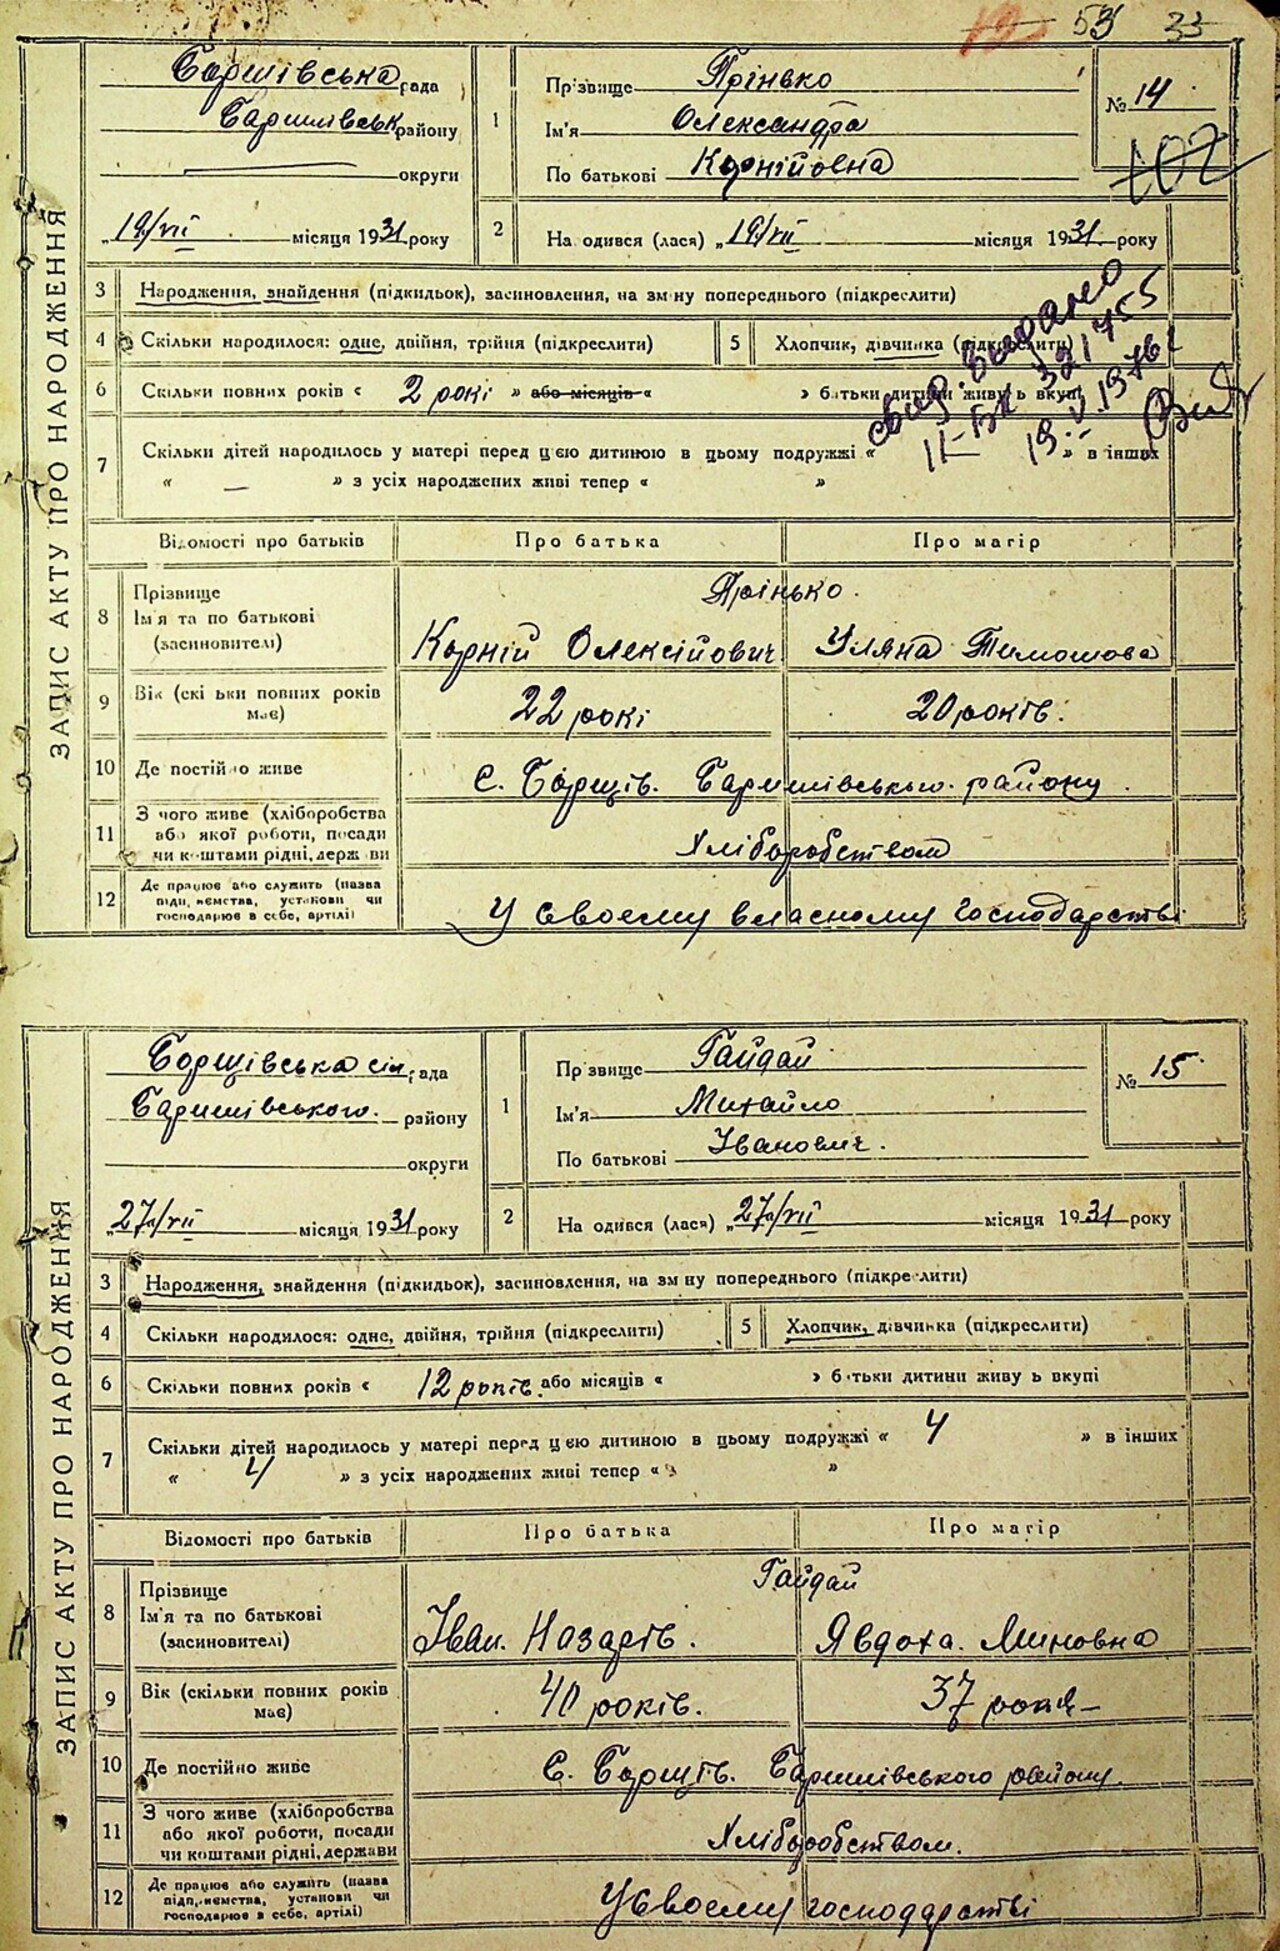 53 33
ЗАПИС АКТУ ПРО НАРОДЖЕННЯ
Борщівська рада
Баришівськ району
округи
"19/VII місяця 1931 року
1 Прізвище Прінько
Ім'я Олександра
По батькові Корнійовна
№ 14
102
2 На одився (лася) „19/VII місяця 1931 року
3 Народження, знайдення (підкидьок), засиновлення, на зм ну попереднього (підкреслити)
4 Скільки народилося: одне, двійня, трійня (підкреслити)
5 Хлопчик, дівчинка (підкреслити)
6 Скільки повних років « 2 рокі » або місяців « » батьки дитини живуть вкупі
7 Скільки дітей народилось у матері перед цією дитиною в цьому подружжі « » в інших
« — » з усіх народжених живі тепер « »
свид. выдано
II-БК 321755
19.V.1976г
Відомості про батьків Про батька Про матір
8 Прізвище
Ім'я та по батькові
(засиновителі)
Прінько.
Корній Олексійович Уляна Тимошова
9 Вік (скі ьки повних років
має)
22 рокі 20 років.
10 Де постійно живе с. Борщів. Баришівського. району.
11 З чого живе (хліборобства
або якої роботи, посади
чи коштами рідні, держ ви
Хліборобством
12 Де працює або служить (назва
підп. иємства, установи чи
господарює в себе, артілі)
У своєму власному господарстві
ЗАПИС АКТУ ПРО НАРОДЖЕННЯ
Борщівська сіл рада
Баришівського. району
округи
„27/VII місяця 1931 року
1 Пр звище Гайдай
Ім'я Михайло
По батькові Іванович.
№ 15
2 На одився (лася) „27/VII місяця 1931 року
3 Народження, знайдення (підкидьок), засиновлення, на зм ну попереднього (підкреслити)
4 Скільки народилося: одне, двійня, трійня (підкреслити)
5 Хлопчик, дівчинка (підкреслити)
6 Скільки повних років « 12 років. або місяців « » б тьки дитини живу ь вкупі
7 Скільки дітей народилось у матері перед цією дитиною в цьому подружжі « 4 » в інших
« 4 » з усіх народжених живі тепер « »
Відомості про батьків Про батька Про матір
8 Прізвище
Ім'я та по батькові
(засиновителі)
Гайдай
Іван. Назарів. Явдоха. Миновна
9 Вік (скільки повних років
має)
40 років. 37 років
10 Де постійно живе с. Борщів. Баришівського району.
11 З чого живе (хліборобства
або якої роботи, посади
чи коштами рідні, держави
Хліборобством.
12 Де працює або служить (назва
підп. иємства, установи чи
господарює в себе, артілі)
У своєму господарстві